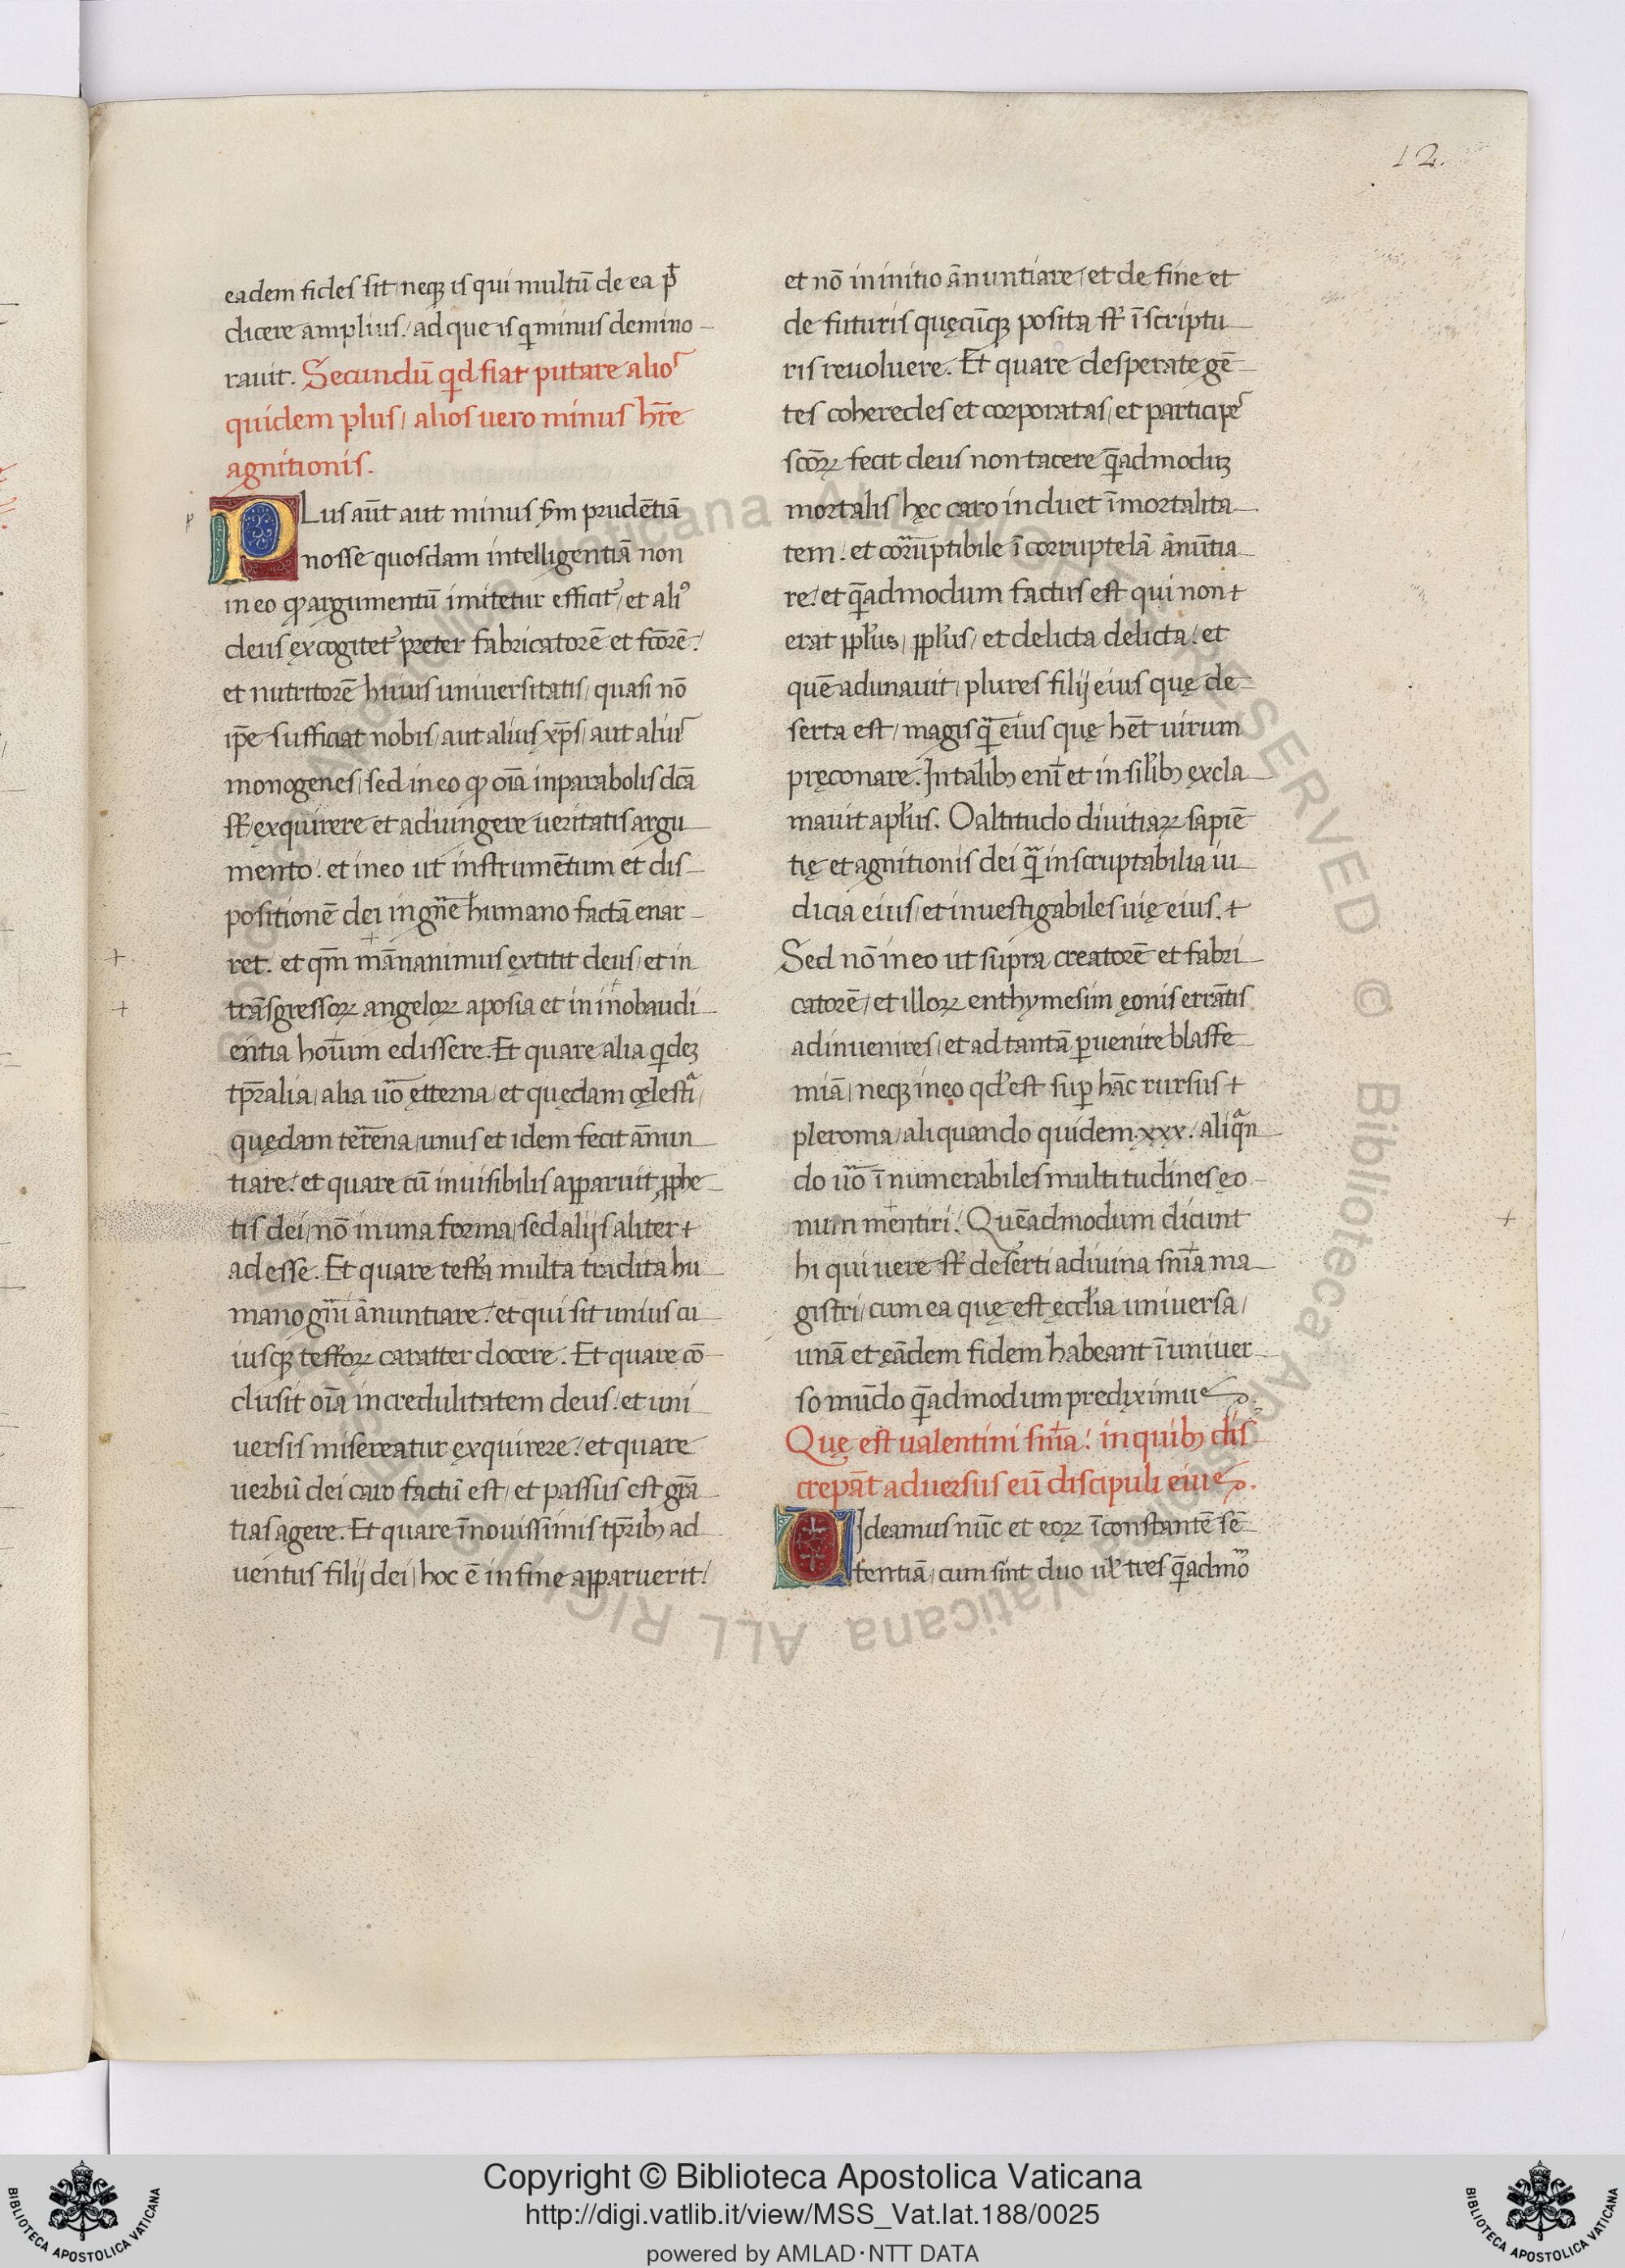 12.
eadem fides sit neqꝫ is qui multū de ea pt̄
dicere amplius / ad que is qi minus demino-
rauit. Secundū qd fiat putare alios
quidem plus / alios uero minus hr̄e
agnitionis.
PLus aūt aut minus s̄m prudētiā
nosse quosdam intelligentiā non
in eo qꝙ argumentū imitetur efficit᷑ / et aliꝰ
deus excogitet᷑ preter fabricatorē et fcōrē /
et nutritorē huius uniuersitatis / quasi nō
ip̄e sufficiat nobis / aut alius xp̄s / aut alius
monogenes / sed in eo qꝙ oīa in parabolis dc̄a
st̄ exquirere et adiungere ueritatis argu-
mento / et in eo ut instrumētum et dis-
positionē dei in gn̄e humano factā enar-
ret. et qm̄ mānanimus extitit deus / et in
trāsgressoꝝ angeloꝝ aposia et in inobaudi-
entia hoīum edissere. Et quare alia qidē
tp̄ralia / alia uō ętterna / et quędam cęlestia /
quędam terrena / unus et idem fecit ānun-
tiare / et quare cū inuisibilis apparuit ꝓphe-
tis dei / nō in una forma / sed alijs aliter +
adesse. Et quare testa multa tradita hu-
mano gn̄i ānuntiare / et qui sit unius cu-
iusqꝫ testoꝝ caratter docere. Et quare cō-
clusit oīa incredulitatem deus / et uni-
uersis misereatur exquirere / et quare
uerbū dei caro factū est / et passus est grā-
tias agere. Et quare ī nouissimis tp̄ribꝫ ad-
uentus filij dei / hoc ē in fine apparuerit /
et nō in initio ānuntiare / et de fine et
de futuris quęcūqꝫ posita st̄ ī scriptu-
ris reuoluere. Et quare desperate gē-
tes coheredes et corporatas / et participes
scōꝝ fecit deus non tacere q̄admodū
mortalis hęc caro induet īmortalita-
tem. et corruptibile īcorruptelā ānūtia-
re / et q̄admodum factus est qui non +
erat ppl̄us / ppl̄us / et delicta delicta / et
quē adunauit / plures filij eius quę de-
serta est / magis q̄ eius quę hēt uirum
pręconare. In talibꝫ enī et in sil̄ibꝫ excla-
mauit apl̄us. O altitudo diuitiaꝝ sapiē-
tię et agnitionis dei q̄ inscruptabilia iu-
dicia eius / et inuestigabiles uię eius. +
Sed nō in eo ut supra creatorē et fabri-
catorē / et illoꝝ enthymesim ęonis errātis
adinuenires / et ad tantā peruenire blasfe-
miā / neqꝫ in eo qd̄ est suꝑ hāc rursus +
pleroma / aliquando quidem .xxx. / aliqān-
do uō īnumerabiles multitudines eo-
num mentiri / Quēadmodum dicunt
hi qui uere st̄ deserti a diuina sn̄ia ma-
gistri / cum ea quę est ęccl̄ia uniuersa /
unā et eādem fidem habeant ī uniuer-
so mūdo q̄admodum prediximus.
Quę est ualentini sn̄ia / in quibꝫ dis-
crepāt aduersus eū discipuli eius.
UIdeamus nūc et eoꝝ īconstantē sē-
tentiā / cum sint duo ul̄ tres q̄admo
Copyright © Biblioteca Apostolica Vaticana
http://digi.vatlib.it/view/MSS_Vat.lat.188/0025
powered by AMLAD·NTT DATA
BIBLIOTECA APOSTOLICA VATICANA
BIBLIOTECA APOSTOLICA VATICANA